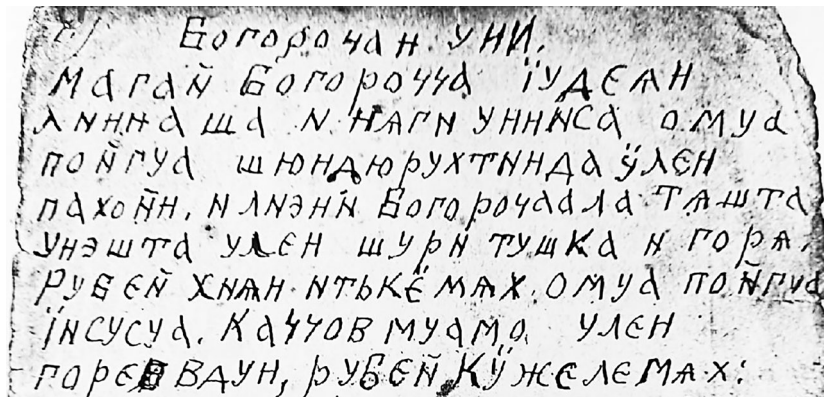 с) Богорочан уни.
Магай Богорочча їудеѧн
линнаша и нѧги унийса омуа
пойгуа шюндюрухтинда ӱлен
пахойн. и лиэнй Богорочаала тѧшта
унэшта улен шури тушка и горѧ.
Рубей хиѧн итькёмѧх омуа пойгуа
Їисусуа. Каччов муамо улен
горевдун, рубей кӱжелемѧх: